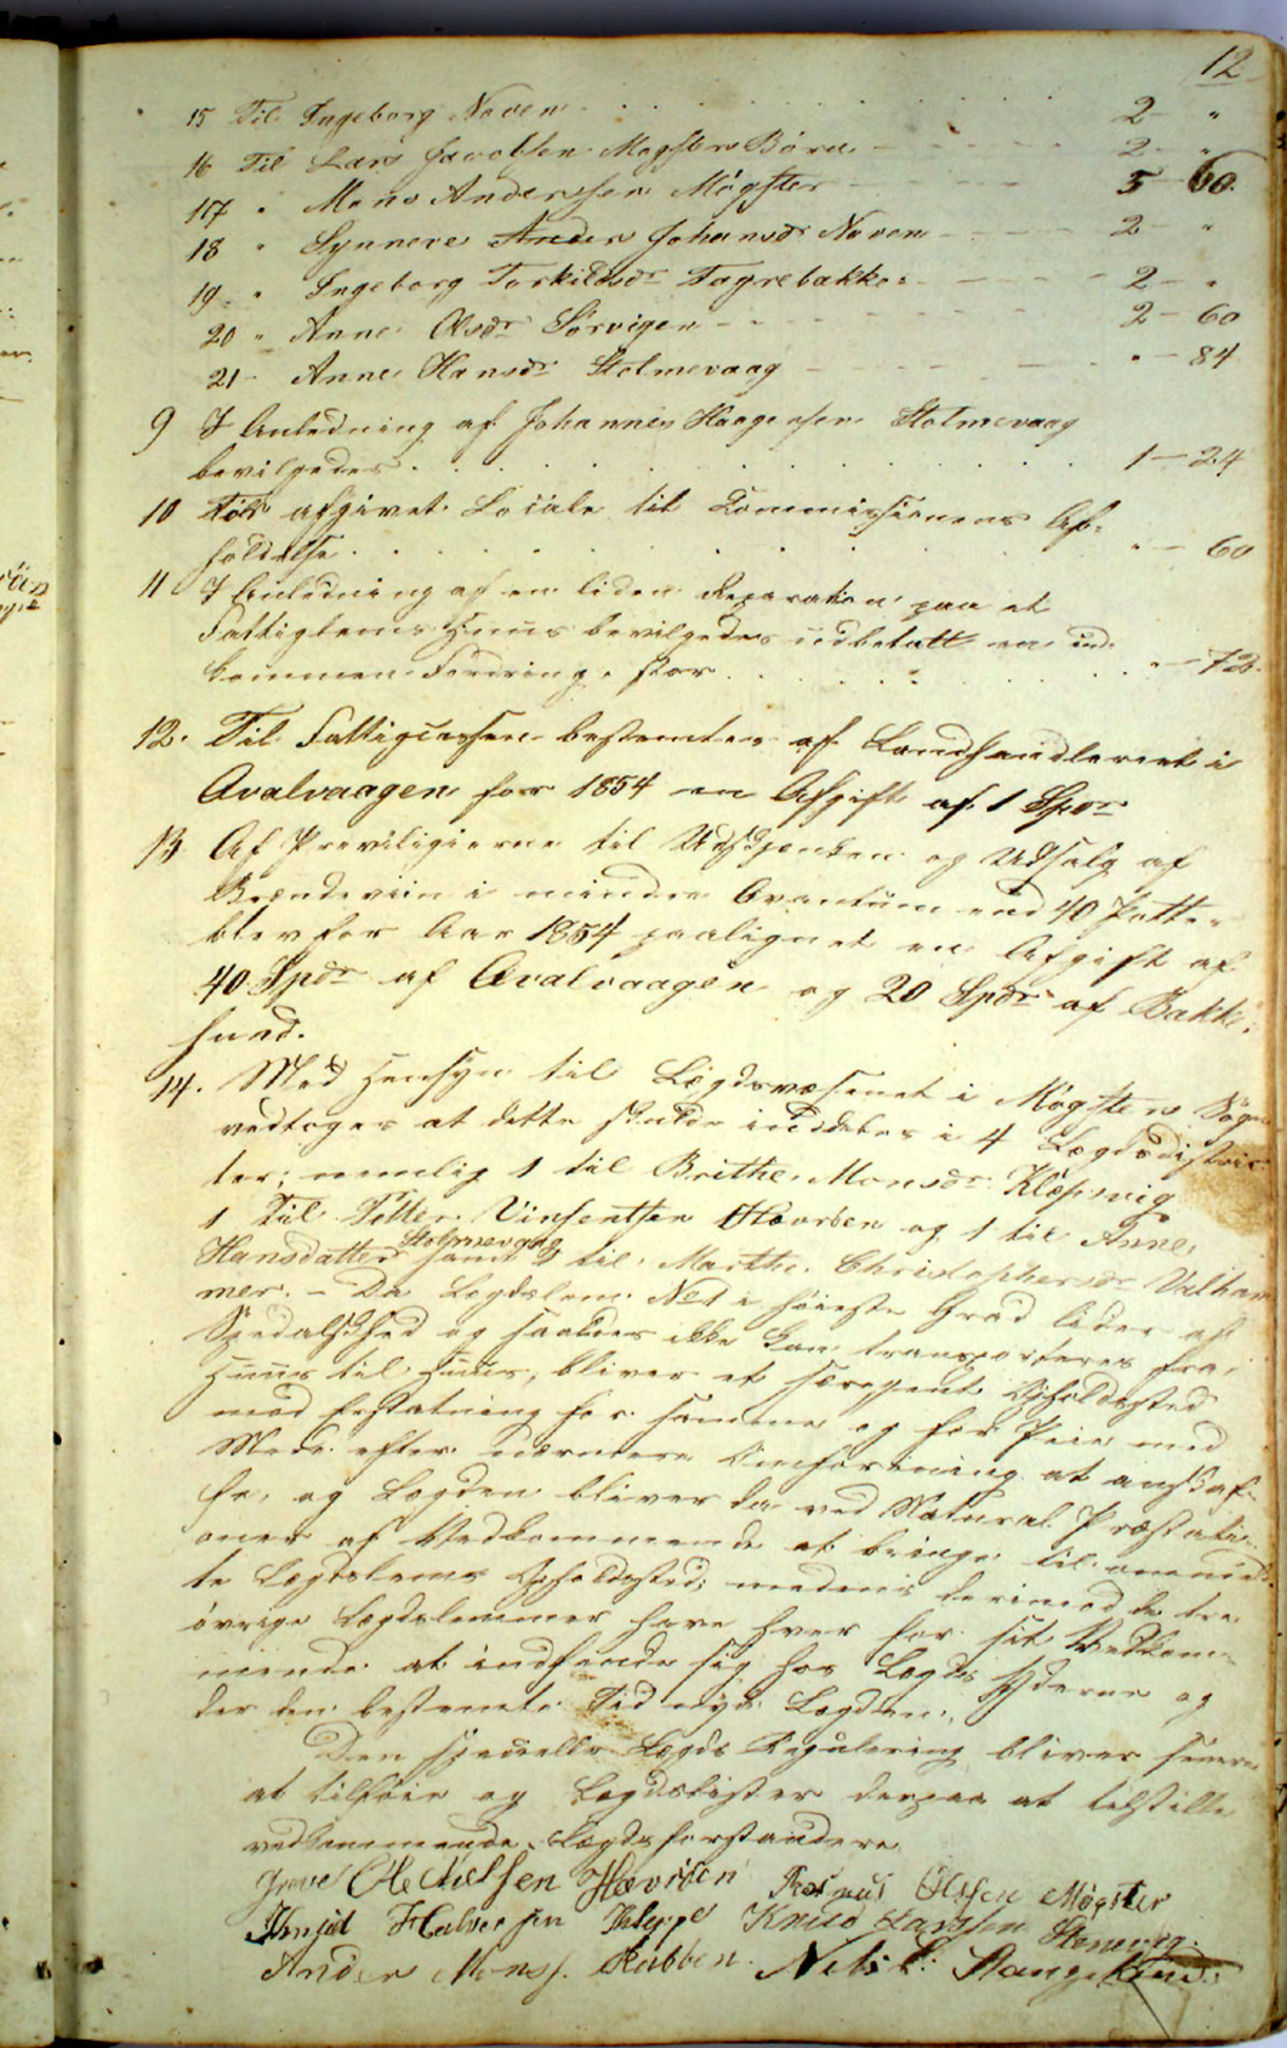 12
15 Til Ingeborg Noven . . . . . . . . . 2 - "
16 Til Lars Jacobsen Mögsters Börn - - - - - 2 - "
17 " Mons Anderssen Mögster - - - - - 5 - 60.
18 " Synneve Anders Johansdr Noven - - - - 2 - "
19 " Ingeborg Torkildsdr Fagrebakke - - - - 2 - "
20 " Anne Olsdr Sörvigen - - - - - - 2 - 60
21 - Anne Hansdr Stolmevaag - - - - - " - 84
9 I Anledning af Johannes Haagensen Stolmevaag
bevilgedes . . . . . . . . . . . . . 1 - 24
10 For afgivet Locale til Commissionens Af-
holdelse . . . . . . . . . . " - 60
11 I Anledning af en liden Reparation paa et
Fattiglems Huus bevilgedes udbetalt en ind-
kommen Fordring, stor . . . . . . . . " - 72.
12. Til Fattigcassen bestemtes af Landhandleriet i
Qvalvaagen for 1854 en Afgift af 1 Spdr
13 Af Previligierne til Udskjenken og Udsalg af
Brændeviin i mindre Qvantum end 40 Potter
blev for Aar 1854 paalignet en Afgift af
40 Spdr af Qvalvaagen og 20 Spdr af Bakke-
sund.
14. Med Hensyn til Lægdsvæsenet i Mögster Sogn
vedtoges at dette skulde inddeles i 4 Lægdsdistric-
ter; nemlig 1 til Brithe Monsdr Klepsvig
1 til Petter Vinsentsen Hevröen og 1 til Anne
Hansdatter Stolmevaag samt 1 til Marthe Christophersdr Valham-
mer. - Da Lægdslem No 1 i höieste Grad lider af
Spedalskhed og saaledes ikke kan transporteres fra
Huus til Huus, bliver et særegent Opholdssted
mod Erstatning for samme og for Pleie med
Mere efter nærmere Omforening at anskaf-
fe, og Lægden bliver da ved Natural Præstati-
oner af Vedkommende at bringe til anvend-
te Lægdslems Opholdssted; medens derimod de tre
övrige Lægdslemmer have hver for sit Vedkom-
mende at indfinde sig hos Lægds Yderne og
der den bestemte Tid nyde Lægden.
Den specielle Lægds Regulering bliver senere
at tilföie og Lægdslister derpaa at tilstille
vedkommende Lægdsforstandere
Greve Ole Nielsen Hevröen Rasmus Olssen Mögster
Halvorsen Kleppe Knud Larssen Stenevig.
Anders Monss. Rabben. Nels L. Stangeland